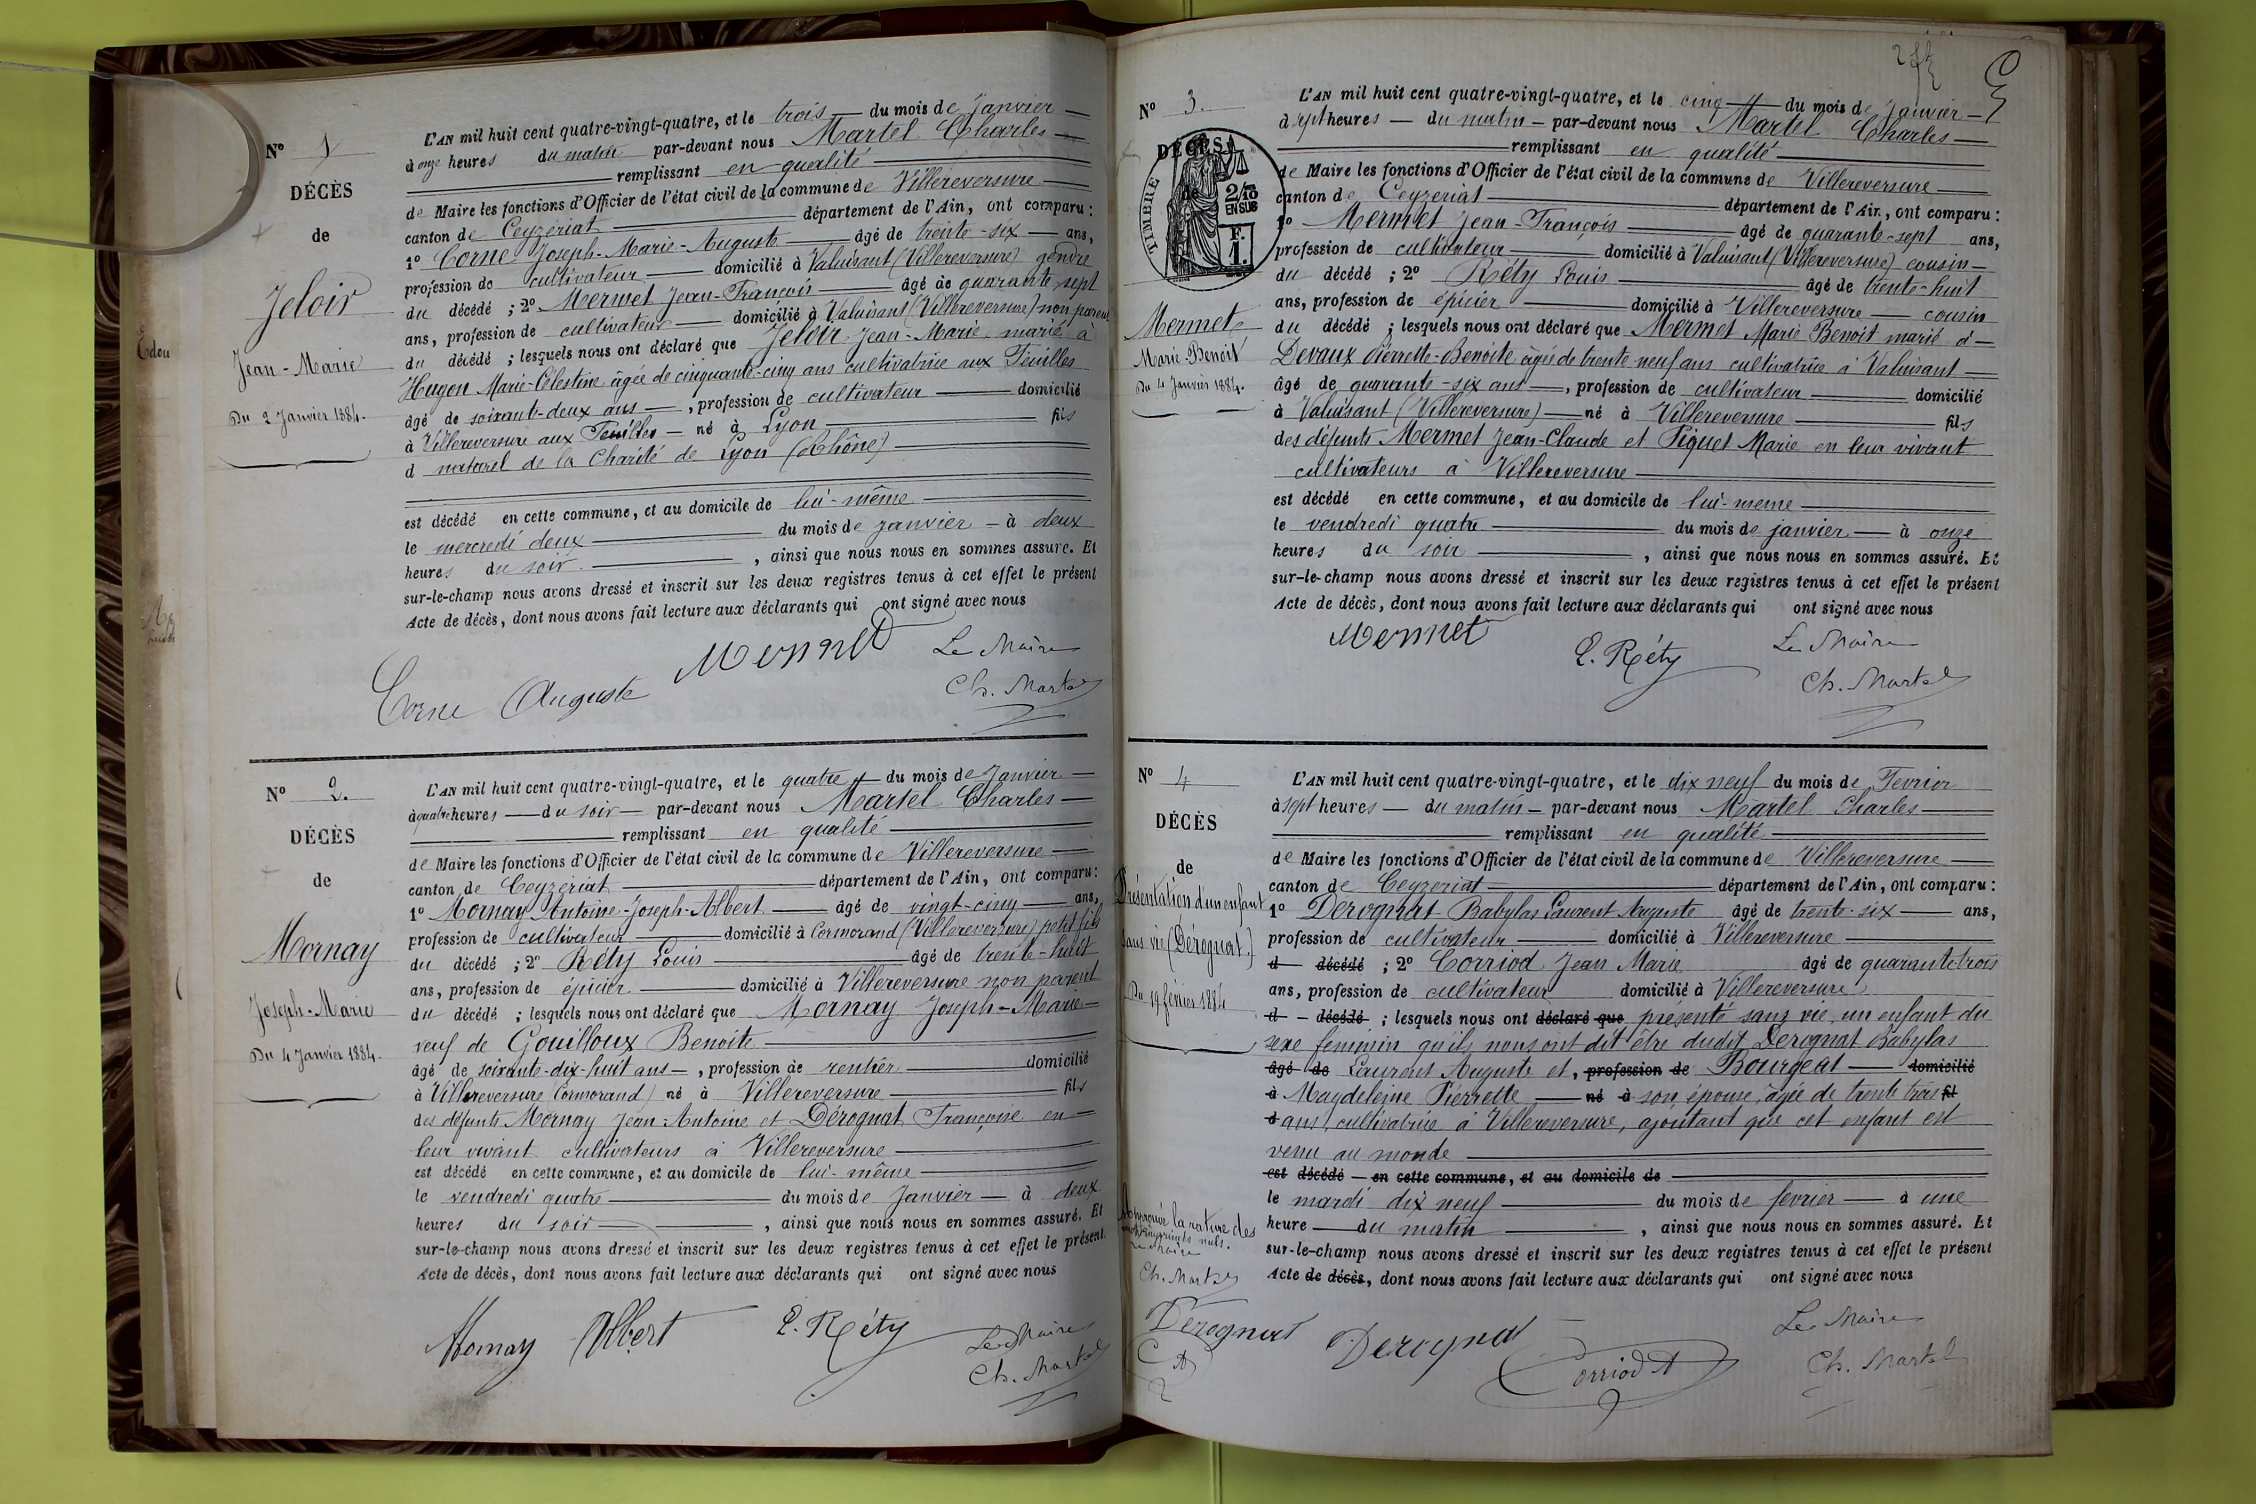 Nº 1
DÉCÈS
de
Jeloir
Jean-Marie
Du 2 Janvier 1884.
L'AN mil huit cent quatre-vingt-quatre, et le trois du mois de Janvier
à onze heures du matin par-devant nous Martel Charles
remplissant en qualité
de Maire les fonctions d'Officier de l'état civil de la commune de Villereversure
canton de Ceyzeriat département de l'Ain, ont comparu :
1º Corne Joseph-Marie-Auguste âgé de trente-six ans,
profession de cultivateur domicilié à Valuisant (Villereversure) gendre
du décédé ; 2º Mermet Jean-François âgé de quarante sept
ans, profession de cultivateur domicilié à Valuisant (Villereversure) non parent
du décédé ; lesquels nous ont déclaré que Jeloir Jean-Marie marié à
Hugon Marie-Célestine âgée de cinquante-cinq ans cultivatrice aux Feuilles
âgé de soixante-deux ans, profession de cultivateur domicilié
à Villereversure aux Feuilles né à Lyon fils
d naturel de la Charité de Lyon (Rhône)
est décédé en cette commune, et au domicile de lui-même
le mercredi deux du mois de janvier à deux
heures du soir, ainsi que nous nous en sommes assuré. Et
sur-le-champ nous avons dressé et inscrit sur les deux registres tenus à cet effet le présent
Acte de décès, dont nous avons fait lecture aux déclarants qui ont signé avec nous
Corne Auguste Mermet Le Maire
Ch. Martel
Nº 2.
DÉCÈS
de
Mornay
Joseph-Marie
Du 4 Janvier 1884.
L'AN mil huit cent quatre-vingt-quatre, et le quatre du mois de Janvier
à quatre heures du soir par-devant nous Martel Charles
remplissant en qualité
de Maire les fonctions d'Officier de l'état civil de la commune de Villereversure
canton de Ceyzeriat département de l'Ain, ont comparu :
1º Mornay Antoine-Joseph-Albert âgé de vingt-cinq ans,
profession de cultivateur domicilié à Cormorand (Villereversure) petit fils
du décédé ; 2º Réty Louis âgé de trente-huit
ans, profession de épicier domicilié à Villereversure non parent
du décédé ; lesquels nous ont déclaré que Mornay Joseph-Marie
veuf de Gouilloux Benoite
âgé de soixante-dix-huit ans, profession de rentier domicilié
à Villereversure (Cormorand) né à Villereversure fils
des défunts Mornay Jean-Antoine et Dérognat Françoise en
leur vivant cultivateurs à Villereversure
est décédé en cette commune, et au domicile de lui-même
le vendredi quatre du mois de Janvier à deux
heures du soir, ainsi que nous nous en sommes assuré. Et
sur-le-champ nous avons dressé et inscrit sur les deux registres tenus à cet effet le présent
Acte de décès, dont nous avons fait lecture aux déclarants qui ont signé avec nous
Mornay Albert L. Réty Le Maire
Ch. Martel
Nº 3.
DÉCÈS
de
TIMBRE
2/10
EN SUS
F.
1.
Mermet
Marie-Benoit
Du 4 Janvier 1884.
L'AN mil huit cent quatre-vingt-quatre, et le cinq du mois de Janvier
à sept heures du matin par-devant nous Martel Charles
remplissant en qualité
de Maire les fonctions d'Officier de l'état civil de la commune de Villereversure
canton de Ceyzeriat département de l'Ain, ont comparu :
1º Mermet Jean-François âgé de quarante-sept ans,
profession de cultivateur domicilié à Valuisant (Villereversure) cousin
du décédé ; 2º Réty Louis âgé de trente-huit
ans, profession de épicier domicilié à Villereversure cousin
du décédé ; lesquels nous ont déclaré que Mermet Marie Benoit marié à
Devaux Pierrette-Benoite âgée de trente neuf ans cultivatrice à Valuisant
âgé de quarante-six ans, profession de cultivateur domicilié
à Valuisant (Villereversure) né à Villereversure fils
des défunts Mermet Jean-Claude et Piquet Marie en leur vivant
cultivateurs à Villereversure
est décédé en cette commune, et au domicile de lui-meme
le vendredi quatre du mois de janvier à onze
heures du soir, ainsi que nous nous en sommes assuré. Et
sur-le-champ nous avons dressé et inscrit sur les deux registres tenus à cet effet le présent
Acte de décès, dont nous avons fait lecture aux déclarants qui ont signé avec nous
Mermet L. Réty Le Maire
Ch. Martel
Nº 4
DÉCÈS
de
Présentation d'un enfant
sans vie (Dérognat.)
Du 19 février 1884
L'AN mil huit cent quatre-vingt-quatre, et le dix neuf du mois de Fevrier
à sept heures du matin par-devant nous Martel Charles
remplissant en qualité
de Maire les fonctions d'Officier de l'état civil de la commune de Villereversure
canton de Ceyzeriat département de l'Ain, ont comparu :
1º Derognat Babylas Laurent Auguste âgé de trente-six ans,
profession de cultivateur domicilié à Villereversure
d décédé ; 2º Corriod Jean Marie âgé de quarante-trois
ans, profession de cultivateur domicilié à Villereversure
d décédé ; lesquels nous ont déclaré que présenté sans vie un enfant du
sexe feminin qu'ils nous ont dit être dudit Derognat Babylas
âgé de Laurent Auguste et, profession de Bourgeat domicilié
à Magdeleine Pierrette né à son épouse, âgée de trente trois fil
d ans, cultivatrice à Villereversure, ajoutant que cet enfant est
venu au monde
est décédé en cette commune, et au domicile de
le mardi dix neuf du mois de fevrier à une
heure du matin, ainsi que nous nous en sommes assuré. Et
sur-le-champ nous avons dressé et inscrit sur les deux registres tenus à cet effet le présent
Acte de décès, dont nous avons fait lecture aux déclarants qui ont signé avec nous
Approuvée la rature des
mots imprimés nuls.
Le Maire
Ch. Martel
Dérognat Derognat Corriod Le Maire
Ch. Martel